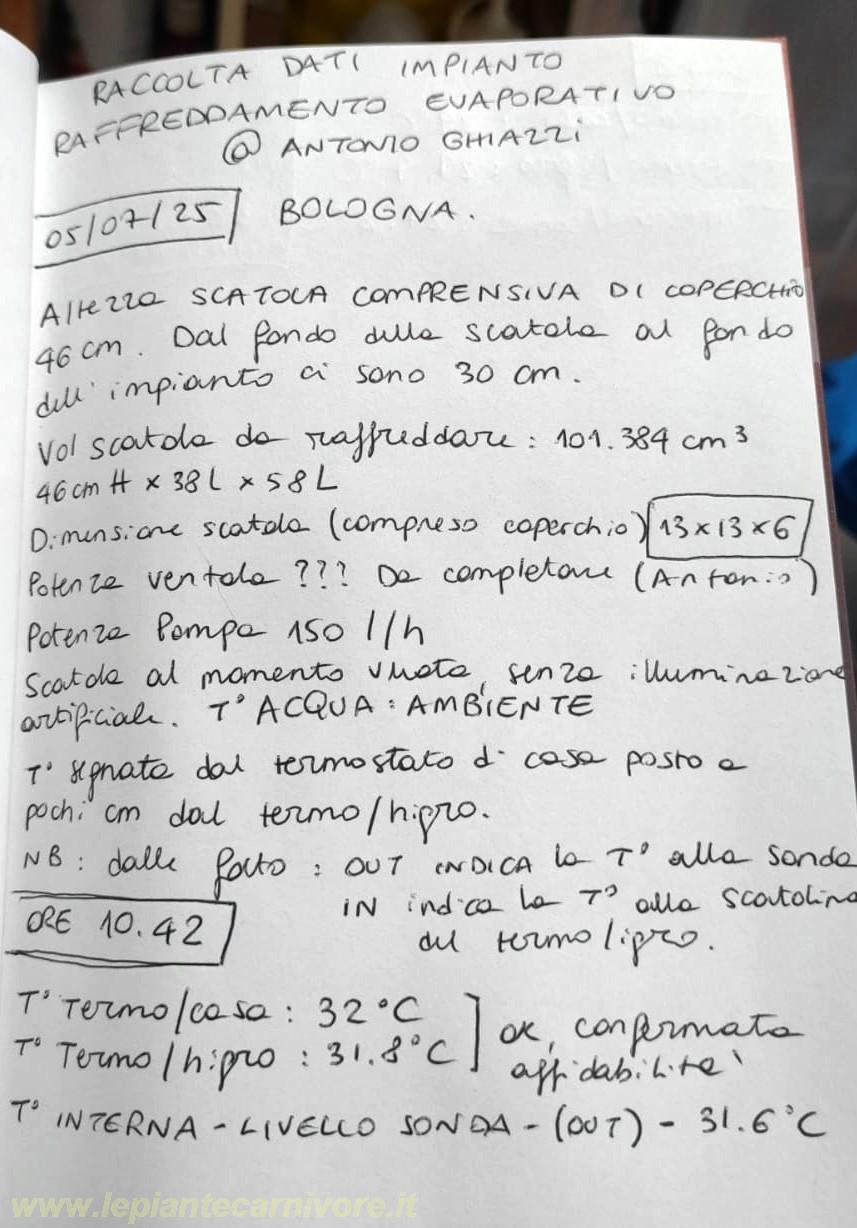 RACCOLTA DATI IMPIANTO
RAFFREDDAMENTO EVAPORATIVO
@ ANTONIO GHIAZZI
05/07/25 BOLOGNA.
Altezza SCATOLA COMPRENSIVA DI COPERCHIO
46 cm. Dal fondo della scatola al fondo
dell'impianto ci sono 30 cm.
Vol scatola da raffreddare: 101.384 cm³
46 cm H x 38 L x 58 L
Dimensione scatola (compreso coperchio) 13x13x6
Potenza ventola ??? Da completare (Antonio)
Potenza Pompa 150 l/h
Scatola al momento vuota, senza illuminazione
artificiale. T° ACQUA: AMBIENTE
T° segnata dal termostato di casa posto a
pochi cm dal termo/hipro.
NB: dalle foto: OUT INDICA la T° alla sonda
IN indica la T° alla scatolina
del termo/ipro.
ORE 10.42
T° Termo/casa: 32°C
T° Termo/hipro: 31.8°C ] ok, confermata
affidabilità
T° INTERNA - LIVELLO SONDA - (OUT) - 31.6°C
www.lepiantecarnivore.it